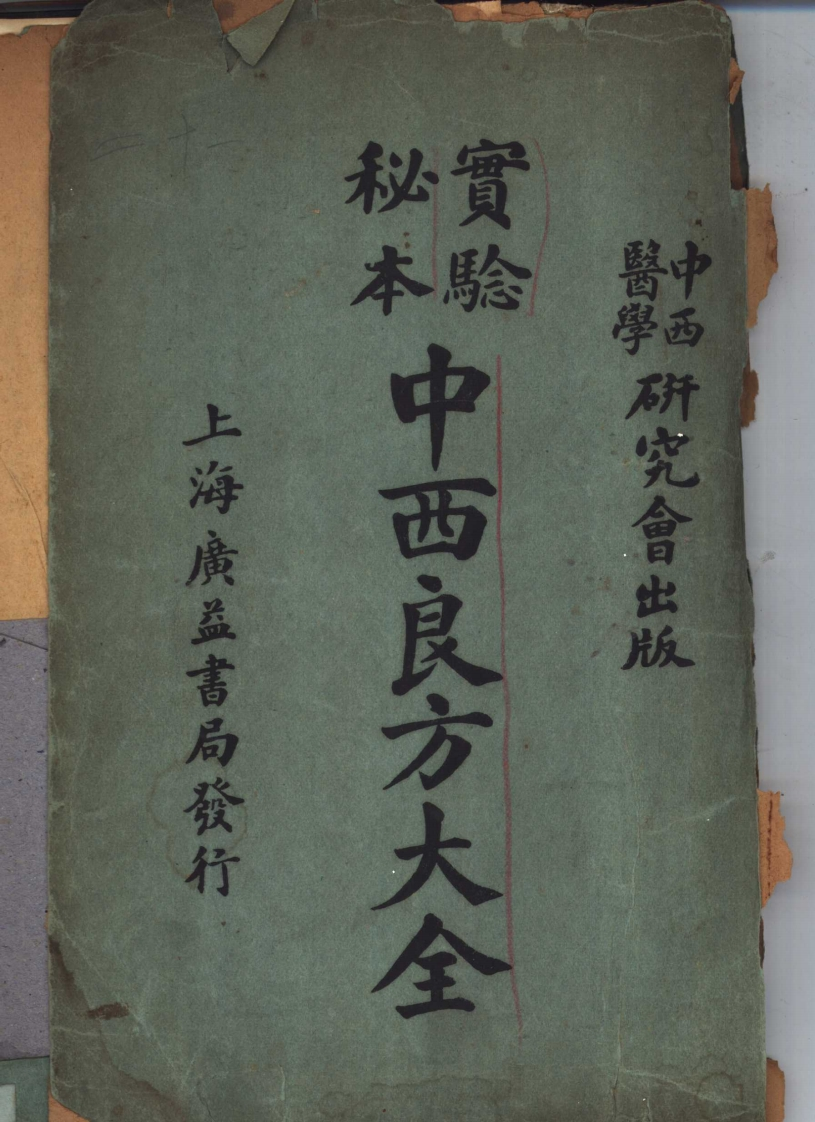 中西醫學研究會出版
實騐秘本
中西良方大全
上海廣益書局發行